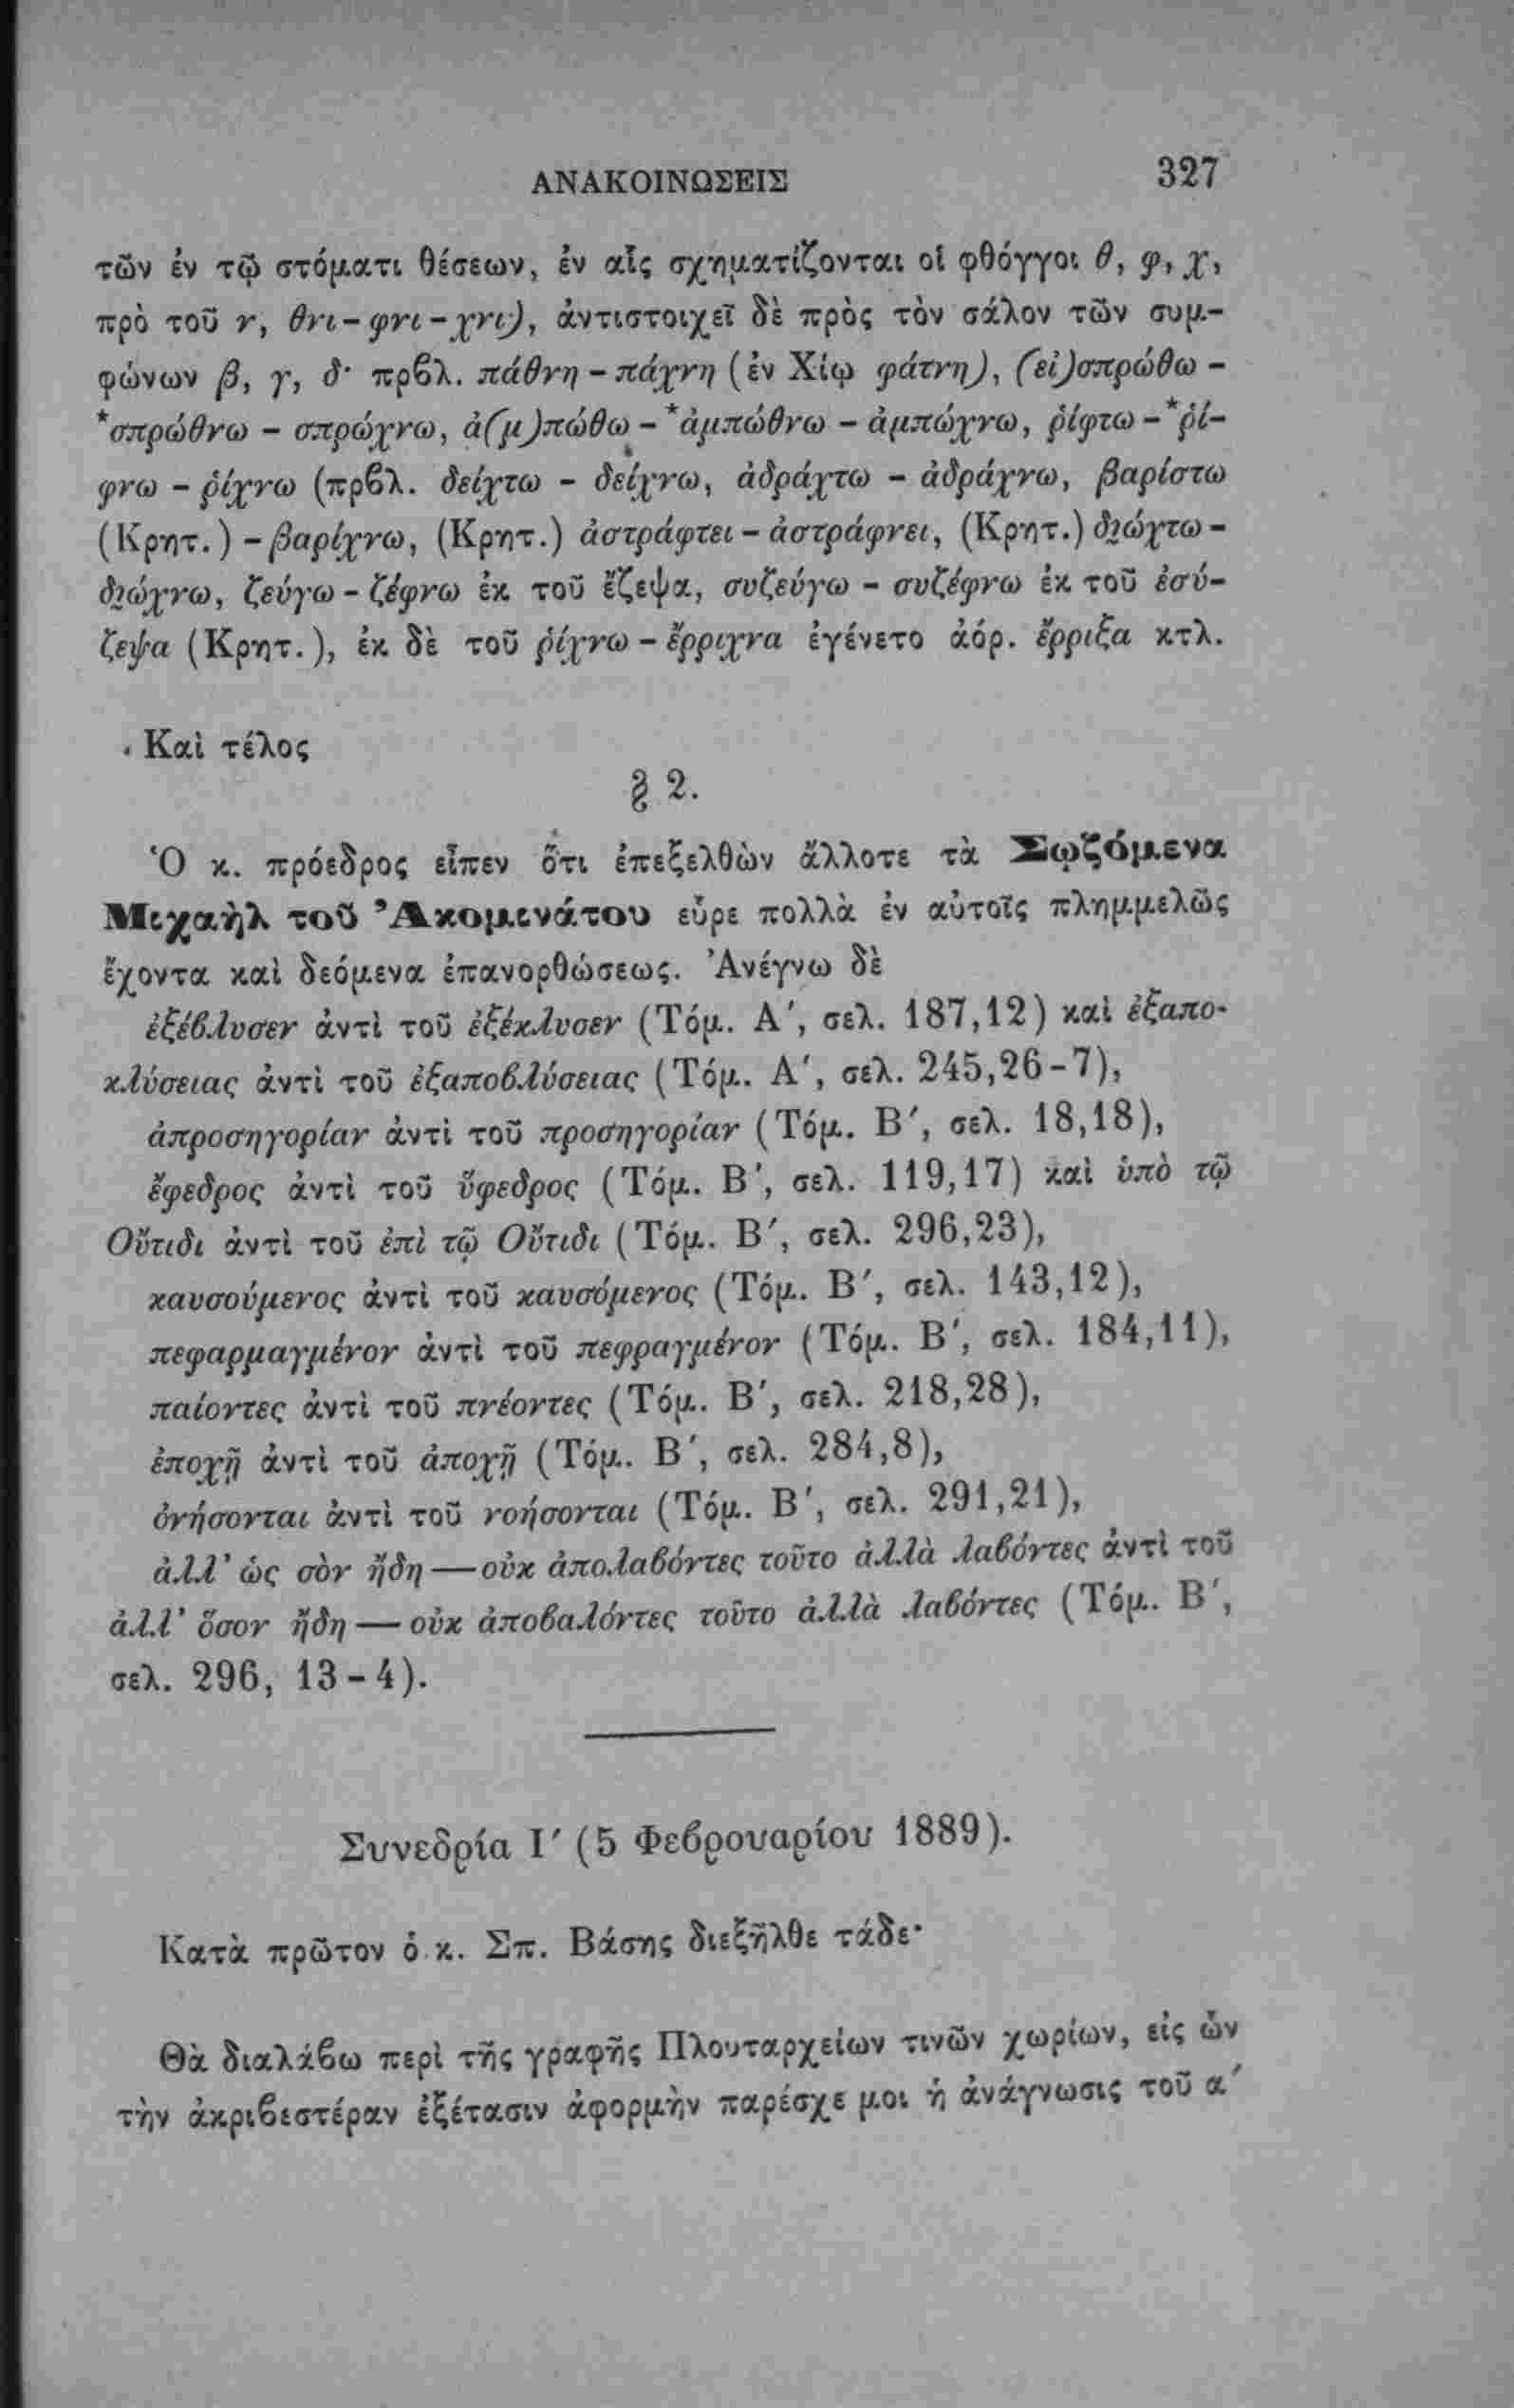 ΑΝΑΚΟΙΝΩΣΕΙΣ 327
τῶν ἐν τῷ στόματι θέσεων, ἐν αἷς σχηματίζονται οἱ φθόγγοι θ, φ, χ,
πρὸ τοῦ ν, θνι - φνι - χνι), ἀντιστοιχεῖ δὲ πρὸς τὸν σάλον τῶν συμ-
φώνων β, γ, δ· πρβλ. πάθνη - πάχνη (ἐν Χίῳ φάτνη), (εἰ)σπρώθω -
*σπρώθνω - σπρώχνω, ἀ(μ)πώθω - *ἀμπώθνω - ἀμπώχνω, ῥίφτω - *ῥί-
φνω - ῥίχνω (πρβλ. δείχτω - δείχνω, ἀδράχτω - ἀδράχνω, βαρίστω
(Κρητ.) - βαρίχνω, (Κρητ.) ἀστράφτει - ἀστράφνει, (Κρητ.) δι̯ώχτω -
δι̯ώχνω, ζεύγω - ζέφνω ἐκ τοῦ ἔζεψα, συζεύγω - συζέφνω ἐκ τοῦ ἐσύ-
ζεψα (Κρητ.), ἐκ δὲ τοῦ ῥίχνω - ἔρριχνα ἐγένετο ἀόρ. ἔρριξα κτλ.
Καὶ τέλος
§ 2.
Ὁ κ. πρόεδρος εἶπεν ὅτι ἐπεξελθὼν ἄλλοτε τὰ Σῳζόμενα
Μιχαὴλ τοῦ Ἀκομινάτου εὗρε πολλὰ ἐν αὐτοῖς πλημμελῶς
ἔχοντα καὶ δεόμενα ἐπανορθώσεως. Ἀνέγνω δὲ
ἐξέβλυσεν ἀντὶ τοῦ ἐξέκλυσεν (Τόμ. Α΄, σελ. 187,12) καὶ ἐξαπο-
κλύσειας ἀντὶ τοῦ ἐξαποβλύσειας (Τόμ. Α΄, σελ. 245,26-7),
ἀπροσηγορίαν ἀντὶ τοῦ προσηγορίαν (Τόμ. Β΄, σελ. 18,18),
ἔφεδρος ἀντὶ τοῦ ὕφεδρος (Τόμ. Β΄, σελ. 119,17) καὶ ὑπὸ τῷ
Οὔτιδι ἀντὶ τοῦ ἐπὶ τῷ Οὔτιδι (Τόμ. Β΄, σελ. 296,23),
καυσούμενος ἀντὶ τοῦ καυσόμενος (Τόμ. Β΄, σελ. 143,12),
πεφαρμαγμένον ἀντὶ τοῦ πεφραγμένον (Τόμ. Β΄, σελ. 184,11),
παίοντες ἀντὶ τοῦ πνέοντες (Τόμ. Β΄, σελ. 218,28),
ἐποχῇ ἀντὶ τοῦ ἀποχῇ (Τόμ. Β΄, σελ. 284,8),
ὀνήσονται ἀντὶ τοῦ νοήσονται (Τόμ. Β΄, σελ. 291,21),
ἀλλ' ὡς σὸν ἤδη — οὐκ ἀπολαβόντες τοῦτο ἀλλὰ λαβόντες ἀντὶ τοῦ
ἀλλ' ὅσον ἤδη — οὐκ ἀποβαλόντες τοῦτο ἀλλὰ λαβόντες (Τόμ. Β΄,
σελ. 296, 13-4).
Συνεδρία Ι΄ (5 Φεβρουαρίου 1889).
Κατὰ πρῶτον ὁ κ. Σπ. Βάσης διεξῆλθε τάδε·
Θὰ διαλάβω περὶ τῆς γραφῆς Πλουταρχείων τινῶν χωρίων, εἰς ὧν
τὴν ἀκριβεστέραν ἐξέτασιν ἀφορμὴν παρέσχε μοι ἡ ἀνάγνωσις τοῦ α΄